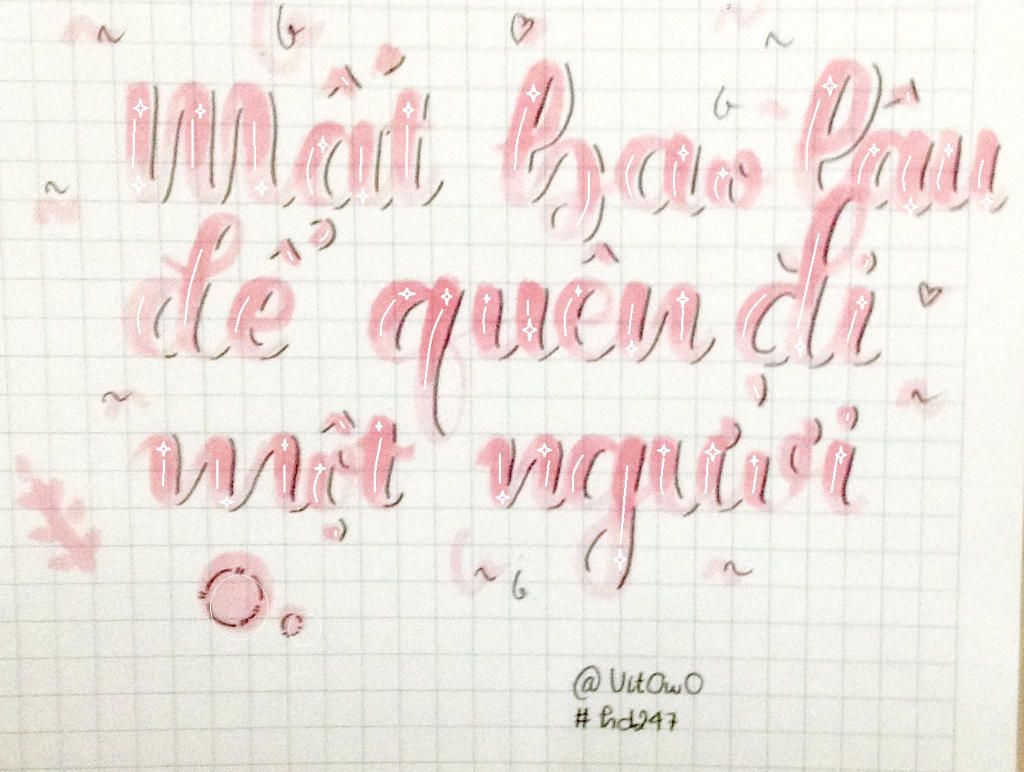 Mất bao lâu
để quên đi
một người
@VitOwO
#hd247